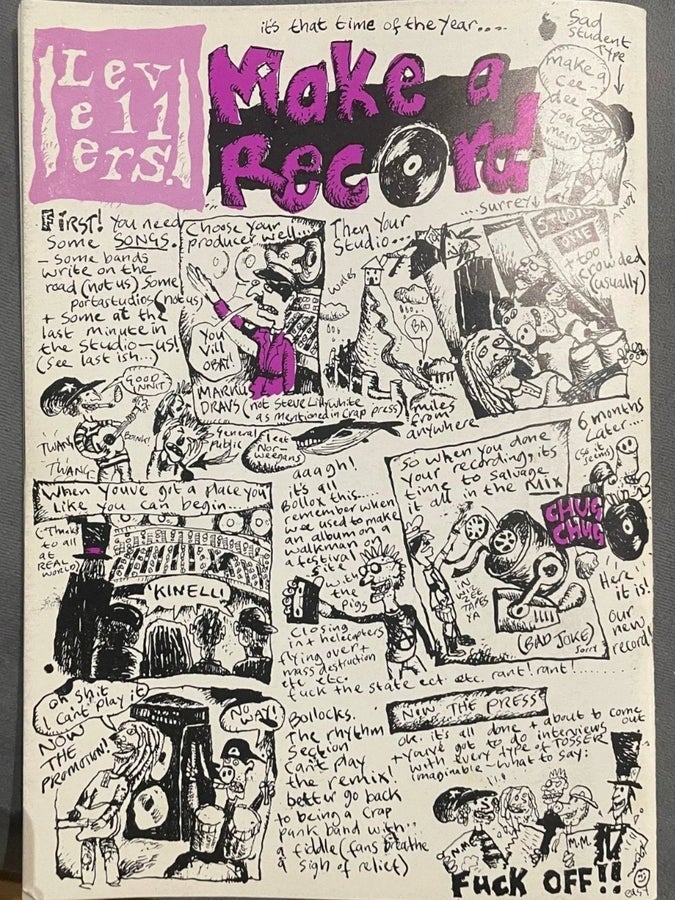 it's that time of the year....
Lev
ell
ers!
Make a
Record
Sad
student
type
make a
cee
dee
you
mean
FIRST! You need
some SONGS.
- Some bands
write on the
road (not us) Some
portastudios (not us)
+ Some at the
last minute in
the studio - us!
(see last ish...)
GOOD
INNIT
TWANG
TWANG
BOINK!
General
Public
Choose your
producer well...
You
Vill
OBAY!
MARKUS
DRAVS (not Steve Lillywhite
as mentioned in crap press)
Then Your
Studio...
wales
BA
miles
from
anywhere
....Surrey
STUDIO
ONE
too
crowded
(usually)
fleet
Nor-
weegans
When youve got a place you
Like you can begin...
(Thanks
to all
at
REAL
WORLD)
'KINELL!
aaagh!
it's all
Bollox this....
remember when
we used to make
an album on a
walkman on
a festival
site
with
the
Pigs
Closing
in + helecopters
flying over +
mass destruction
etc.
fuck the state ect. etc. rant! rant!........
So when you done
your recording, its
time to salvage
it all in the MIX
IN
VIZ ZEE
TAPES
YA
(BAD JOKE)
sorry
6 months
Later...
(so it
seems)
CHUG
CHUG
Here
it is!
our
new
record!
oh shit
I cant play it
NOW
THE
PROMOTION!
NO
WAY!
Bollocks.
The rhythm
section
can't play
the remix!
better go back
to being a crap
punk band with..
a fiddle (fans breathe
a sigh of relief)
NOW THE PRESS
ok. it's all done + about to come
out
+ youve got to do interviews
with every type of TOSSER
imaginable - what to say:
NME
M.M.
FUCK OFF!!